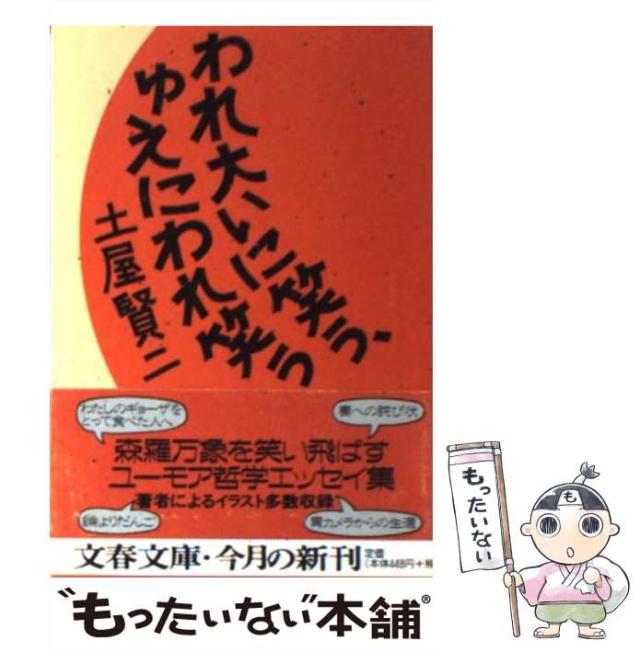 われ大いに笑う、
ゆえにわれ笑う
土屋賢二
わたしのギョーザを
とって食べた人へ
妻への詫び状
森羅万象を笑い飛ばす
ユーモア哲学エッセイ集
著者によるイラスト多数収録
銅像よりだんご
胃カメラからの生還
文春文庫・今月の新刊
定価
(本体448円+税
"もったいない"本舗®
もったいない
も